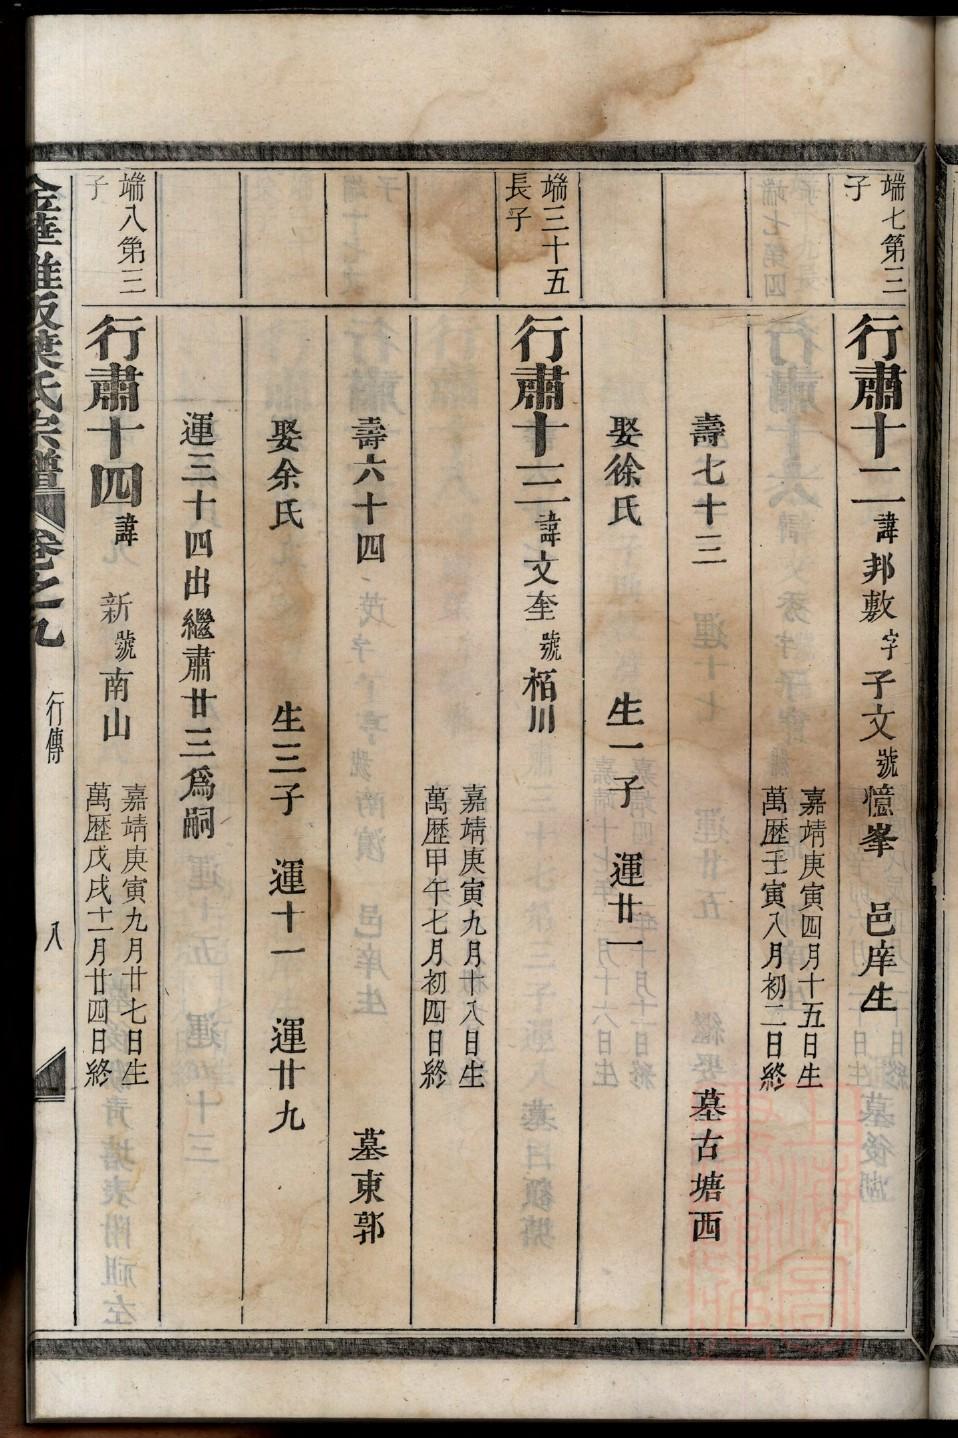 端七第三
子
行肅十二諱邦敷字子文號憶峯 邑庠生
嘉靖庚寅四月十五日生
萬歷壬寅八月初二日終
壽七十三 墓古塘西
娶徐氏 生一子 運廿一
端三十五
長子
行肅十三諱文奎號栢川
嘉靖庚寅九月十八日生
萬歷甲午七月初四日終
壽六十四 墓東郭
娶余氏 生三子 運十一 運廿九
運三十四出繼肅廿三爲嗣
端八第三
子
行肅十四諱 新號南山
嘉靖庚寅九月廿七日生
萬歷戊戌十一月廿四日終
葉氏宗譜 卷之九 行傳 八